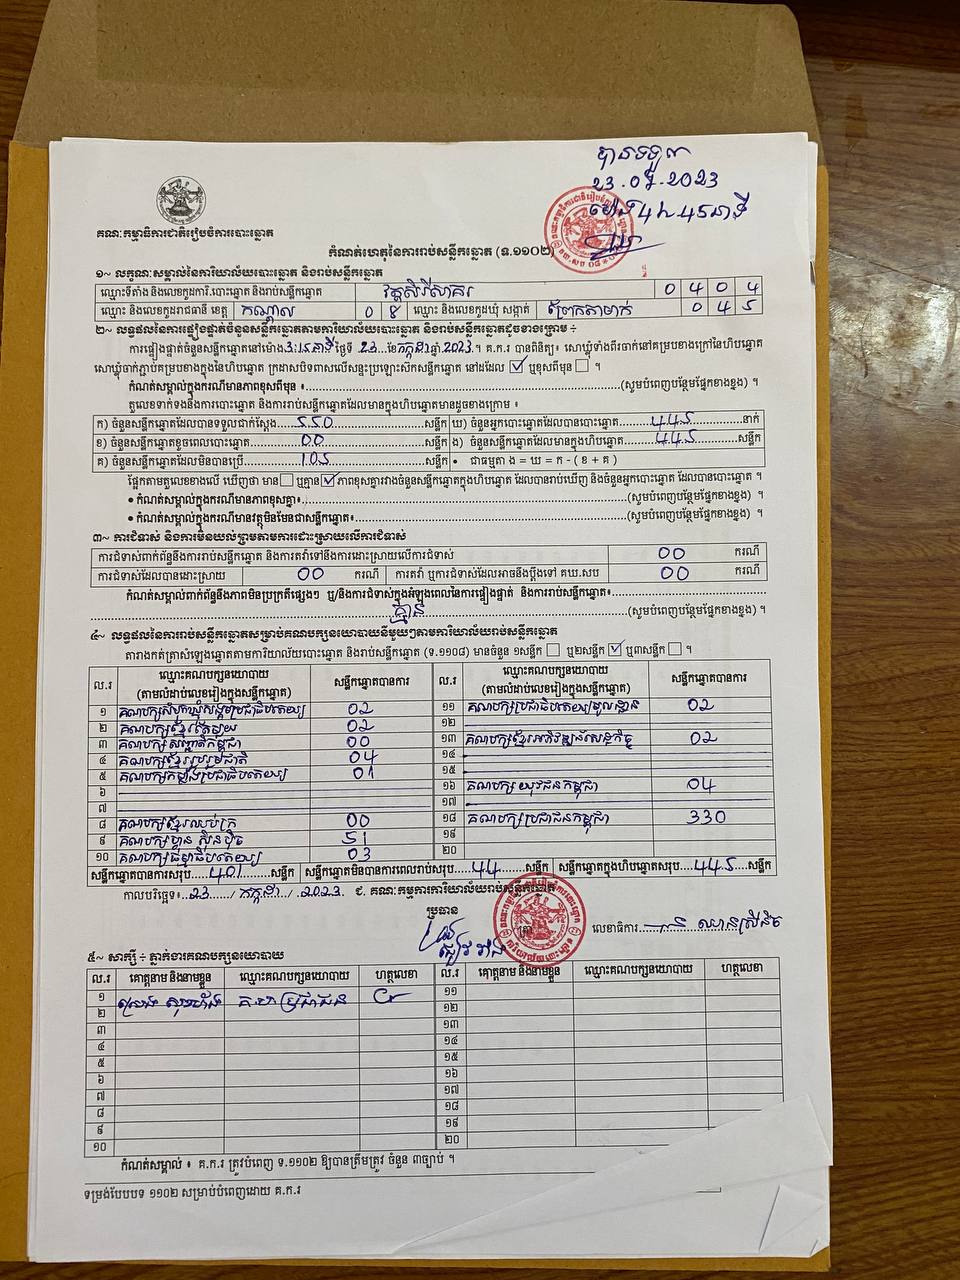 បានទទួល
23.07.2023
ម៉ោង 4 និង 45 នាទី
គណៈកម្មាធិការជាតិរៀបចំការបោះឆ្នោត
កំណត់ហេតុនៃការរាប់សន្លឹកឆ្នោត (ទ.១១០២)
១~ លក្ខណៈសម្គាល់នៃការិយាល័យបោះឆ្នោត និងរាប់សន្លឹកឆ្នោត
ឈ្មោះទីតាំង និងលេខកូដការិ.បោះឆ្នោត និងរាប់សន្លឹកឆ្នោត វត្តសិរីសាគរ 0 4 0 4
ឈ្មោះ និងលេខកូដរាជធានី ខេត្ត កណ្តាល 0 8 ឈ្មោះ និងលេខកូដឃុំ សង្កាត់ ព្រែកតាមាក់ 0 4 5
២~ លទ្ធផលនៃការផ្ទៀងផ្ទាត់ចំនួនសន្លឹកឆ្នោតតាមការិយាល័យបោះឆ្នោត និងរាប់សន្លឹកឆ្នោតដូចខាងក្រោម ÷
ការផ្ទៀងផ្ទាត់ចំនួនសន្លឹកឆ្នោតនៅម៉ោង 3:15នាទី ថ្ងៃទី 23 ខែ កក្កដា ឆ្នាំ 2023 ។ គ.ក.រ បានពិនិត្យ៖ សោឃ្លុំទាំងពីរចាក់នៅគម្របខាងក្រៅនៃហិបឆ្នោត
សោឃ្លុំចាក់ភ្ជាប់គម្របខាងក្នុងនៃហិបឆ្នោត ក្រដាសបិទពាសលើសន្ទះប្រឡោះសឹកសន្លឹកឆ្នោត នៅដដែល ☑ ឬខុសពីមុន ☐ ។
កំណត់សម្គាល់ក្នុងករណីមានភាពខុសពីមុន ៖ (សូមបំពេញបន្ថែមផ្នែកខាងខ្នង) ។
តួលេខទាក់ទងនឹងការបោះឆ្នោត និងការរាប់សន្លឹកឆ្នោតដែលមានក្នុងហិបឆ្នោតមានដូចខាងក្រោម ៖
ក) ចំនួនសន្លឹកឆ្នោតដែលបានទទួលជាក់ស្តែង 550 សន្លឹក ឃ) ចំនួនអ្នកបោះឆ្នោតដែលបានបោះឆ្នោត 445 នាក់
ខ) ចំនួនសន្លឹកឆ្នោតខូចពេលបោះឆ្នោត 00 សន្លឹក ង) ចំនួនសន្លឹកឆ្នោតដែលមានក្នុងហិបឆ្នោត 445 សន្លឹក
គ) ចំនួនសន្លឹកឆ្នោតដែលមិនបានប្រើ 105 សន្លឹក • ជាធម្មតា ង = ឃ = ក - ( ខ + គ )
ផ្អែកតាមតួលេខខាងលើ ឃើញថា មាន ☐ ឬគ្មាន ☑ ភាពខុសគ្នារវាងចំនួនសន្លឹកឆ្នោតក្នុងហិបឆ្នោត ដែលបានរាប់ឃើញ និងចំនួនអ្នកបោះឆ្នោត ដែលបានបោះឆ្នោត ។
• កំណត់សម្គាល់ក្នុងករណីមានភាពខុសគ្នា៖ (សូមបំពេញបន្ថែមផ្នែកខាងខ្នង) ។
• កំណត់សម្គាល់ក្នុងករណីមានវត្ថុមិនមែនជាសន្លឹកឆ្នោត៖ (សូមបំពេញបន្ថែមផ្នែកខាងខ្នង) ។
៣~ ការជំទាស់ និងការមិនយល់ព្រមតាមការដោះស្រាយលើការជំទាស់
ការជំទាស់ពាក់ព័ន្ធនឹងការរាប់សន្លឹកឆ្នោត និងការតវ៉ាទៅនឹងការដោះស្រាយលើការជំទាស់ 00 ករណី
ការជំទាស់ដែលបានដោះស្រាយ 00 ករណី ការតវ៉ា ឬការជំទាស់ដែលអាចនឹងប្តឹងទៅ គឃ.សប 00 ករណី
កំណត់សម្គាល់ពាក់ព័ន្ធនឹងភាពមិនប្រក្រតីផ្សេងៗ ឬ/និងការជំទាស់ក្នុងអំឡុងពេលនៃការផ្ទៀងផ្ទាត់ និងការរាប់សន្លឹកឆ្នោត៖
គ្មាន (សូមបំពេញបន្ថែមផ្នែកខាងខ្នង) ។
៤~ លទ្ធផលនៃការរាប់សន្លឹកឆ្នោតសម្រាប់គណបក្សនយោបាយនីមួយៗតាមការិយាល័យរាប់សន្លឹកឆ្នោត
តារាងកត់ត្រាសំឡេងឆ្នោតតាមការិយាល័យបោះឆ្នោត និងរាប់សន្លឹកឆ្នោត (ទ.១១០៨) មានចំនួន ១សន្លឹក ☐ ឬ២សន្លឹក ☑ ឬ៣សន្លឹក ☐ ។
ល.រ ឈ្មោះគណបក្សនយោបាយ (តាមលំដាប់លេខរៀងក្នុងសន្លឹកឆ្នោត) សន្លឹកឆ្នោតបានការ ល.រ ឈ្មោះគណបក្សនយោបាយ (តាមលំដាប់លេខរៀងក្នុងសន្លឹកឆ្នោត) សន្លឹកឆ្នោតបានការ
១ គណបក្សសំបុកឃ្មុំសង្គមប្រជាធិបតេយ្យ 02 ១១ គណបក្សប្រជាធិបតេយ្យមូលដ្ឋាន 02
២ គណបក្សខ្មែរតែមួយ 02 ១២
៣ គណបក្សសញ្ជាតិកម្ពុជា 00 ១៣ គណបក្សខ្មែរអភិវឌ្ឍន៍សេដ្ឋកិច្ច 02
៤ គណបក្សខ្មែររួបរួមជាតិ 04 ១៤
៥ គណបក្សកម្លាំងប្រជាធិបតេយ្យ 01 ១៥
៦ ១៦ គណបក្សយុវជនកម្ពុជា 04
៧ ១៧
៨ គណបក្សខ្មែរឈប់ក្រ 00 ១៨ គណបក្សប្រជាជនកម្ពុជា 330
៩ គណបក្សហ៊្វុនស៊ិនប៉ិច 51 ១៩
១០ គណបក្សធម្មាធិបតេយ្យ 03 ២០
សន្លឹកឆ្នោតបានការសរុប 401 សន្លឹក សន្លឹកឆ្នោតមិនបានការពេលរាប់សរុប 44 សន្លឹក សន្លឹកឆ្នោតក្នុងហិបឆ្នោតសរុប 445 សន្លឹក
កាលបរិច្ឆេទ៖ 23 / កក្កដា / 2023 ជ. គណៈកម្មការការិយាល័យរាប់សន្លឹកឆ្នោត
ប្រធាន
លេខាធិការ
៥~ សាក្សី ÷ ភ្នាក់ងារគណបក្សនយោបាយ
ល.រ គោត្តនាម និងនាមខ្លួន ឈ្មោះគណបក្សនយោបាយ ហត្ថលេខា ល.រ គោត្តនាម និងនាមខ្លួន ឈ្មោះគណបក្សនយោបាយ ហត្ថលេខា
១ គ.ប ប្រជាជន ១១
២ ១២
៣ ១៣
៤ ១៤
៥ ១៥
៦ ១៦
៧ ១៧
៨ ១៨
៩ ១៩
១០ ២០
កំណត់សម្គាល់ ៖ គ.ក.រ ត្រូវបំពេញ ទ.១១០២ ឱ្យបានត្រឹមត្រូវ ចំនួន ៣ច្បាប់ ។
ទម្រង់បែបបទ ១១០២ សម្រាប់បំពេញដោយ គ.ក.រ